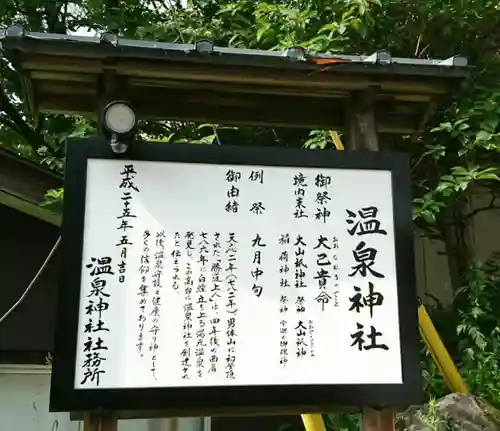 温泉神社
おおなむちのみこと
御祭神　大己貴命
境内末社　大山祇神社　祭神　大山祇神
稲荷神社　祭神
例祭　九月中旬
御由緒　天応二年（七八二年）男体山に初登頂
された「勝道上人」は、四年後の西暦
七八六年に白煙立ち上る湯元温泉を
発見し、この高台に温泉神社を創建され
たと伝えられる。
以後、温泉守護と健康の守り神として
多くの信仰を集めております。
平成二十五年五月吉日
温泉神社社務所